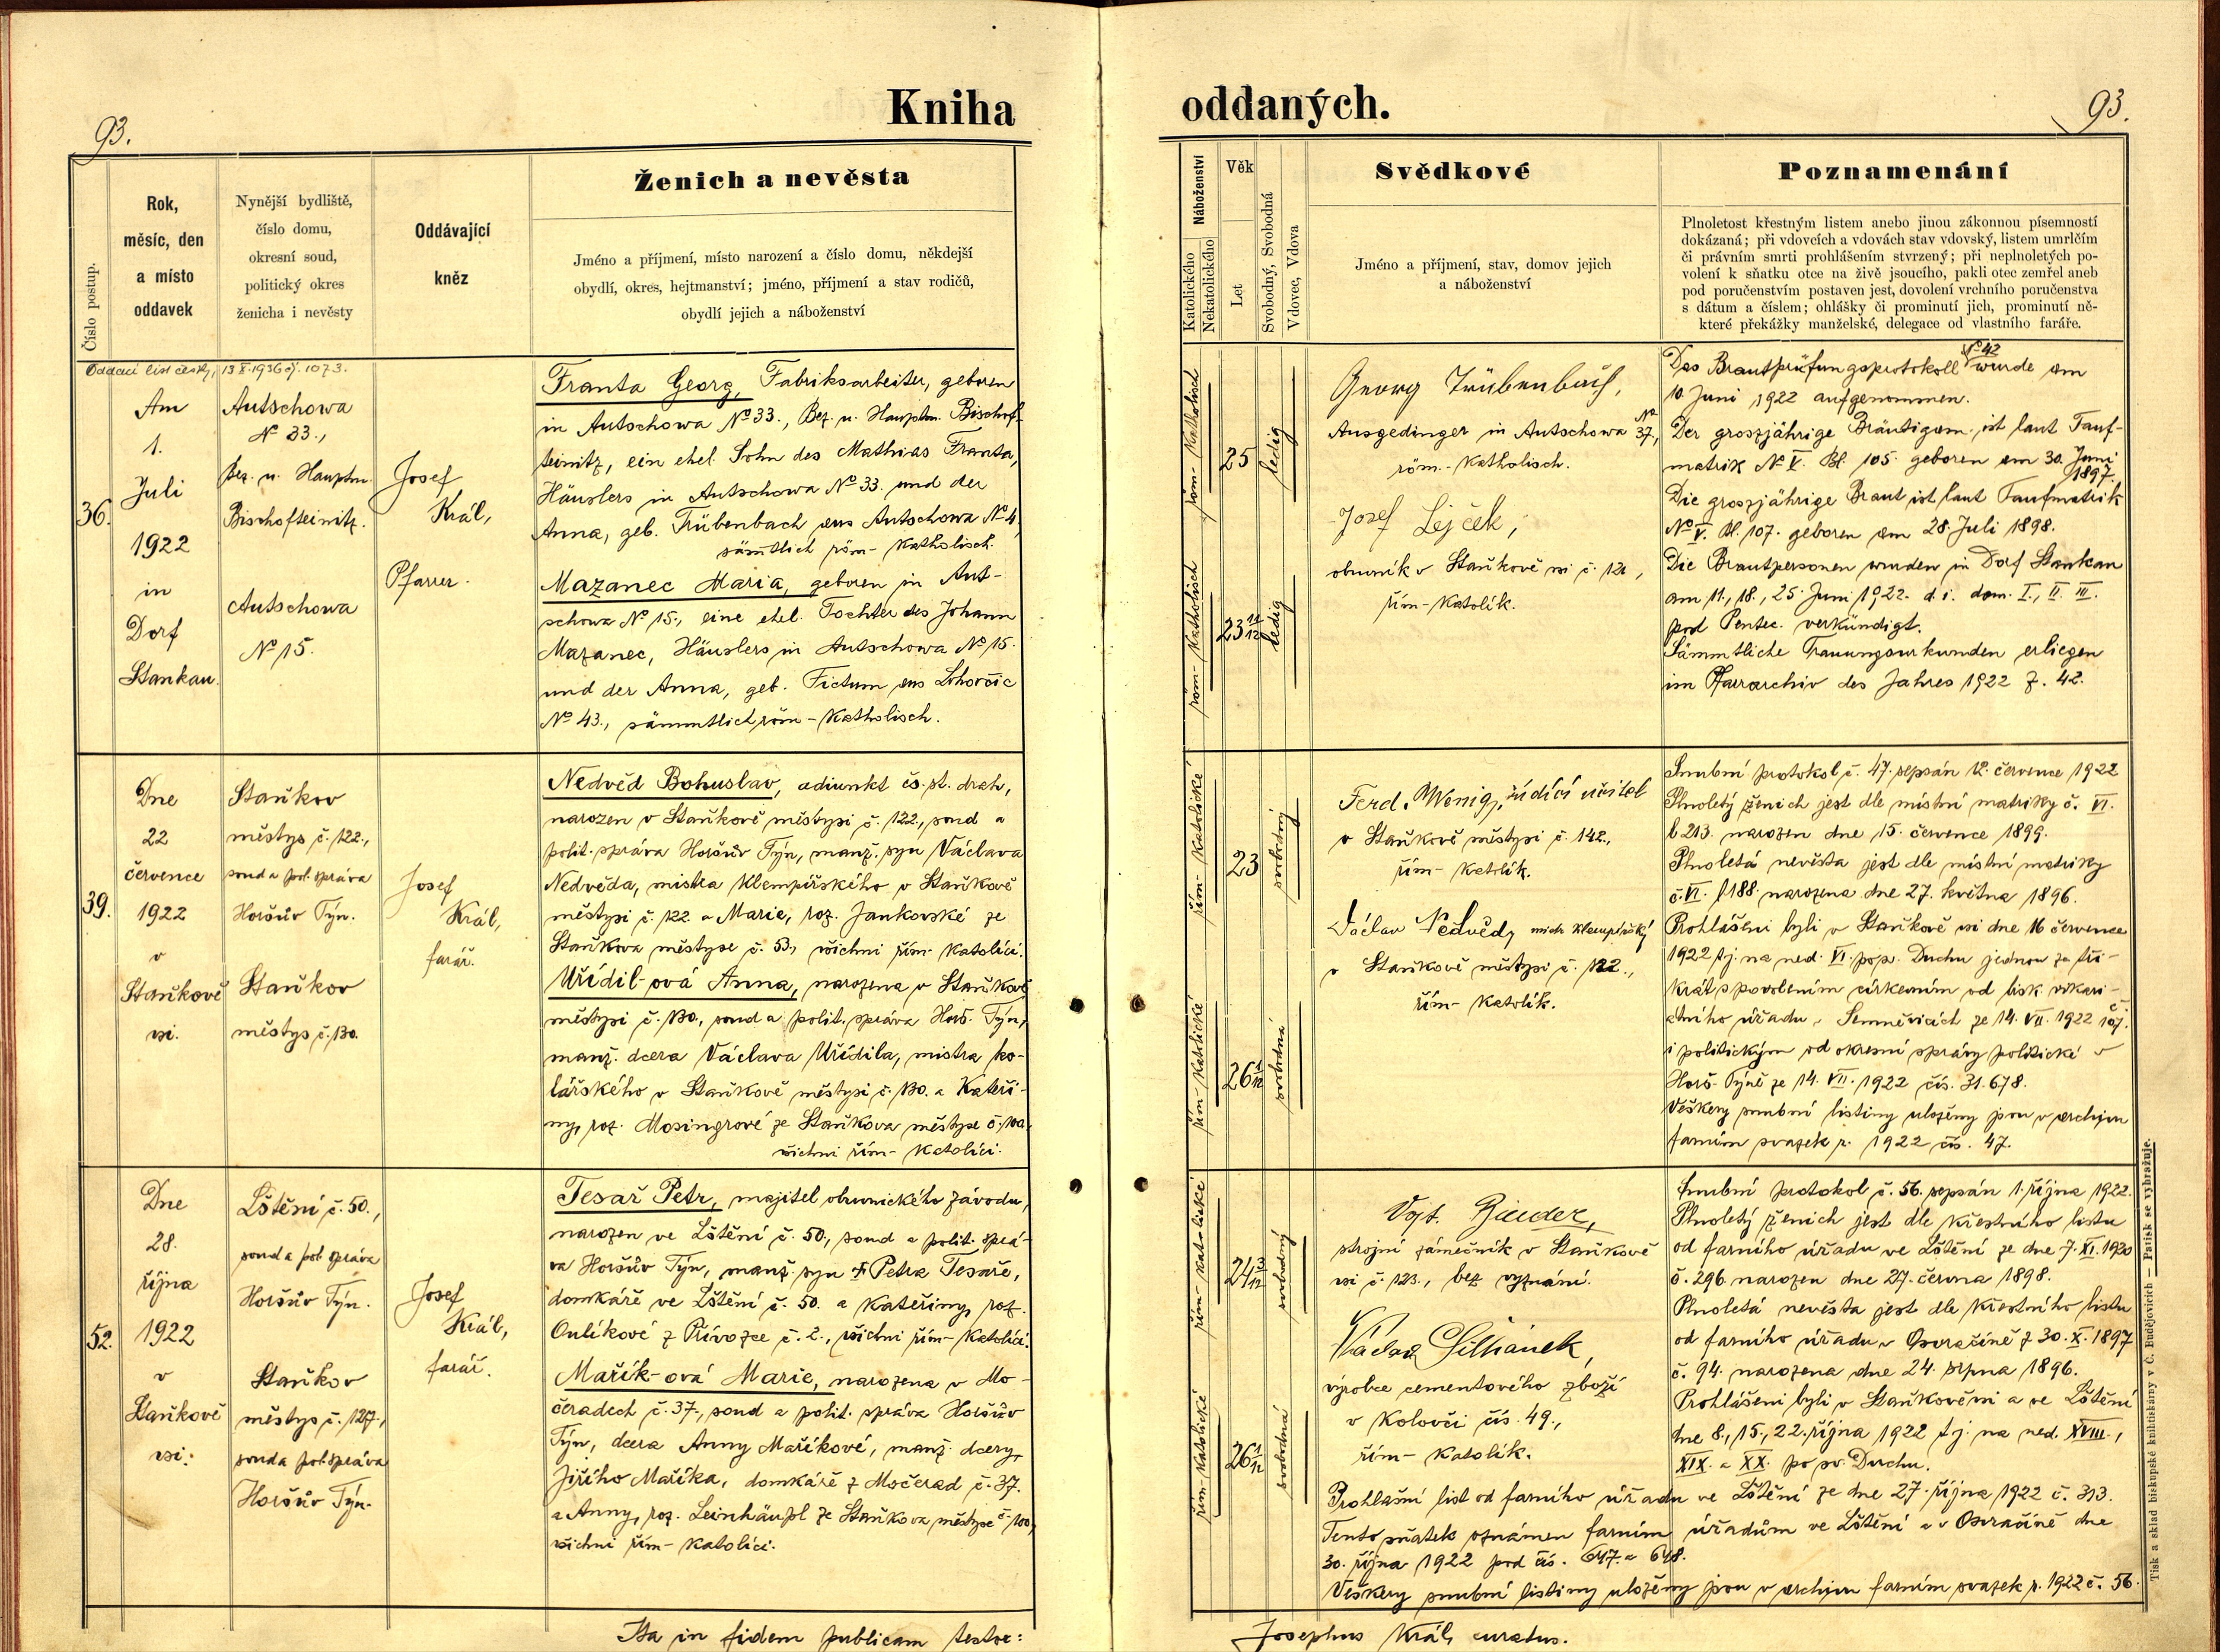 93.
Kniha
oddaných.
93.
Číslo postup.
Rok,
měsíc, den
a místo
oddavek
Nynější bydliště,
číslo domu,
okresní soud,
politický okres
ženicha i nevěsty
Oddávající
kněz
Ženich a nevěsta
Jméno a příjmení, místo narození a číslo domu, někdejší
obydlí, okres, hejtmanství; jméno, příjmení a stav rodičů,
obydlí jejich a náboženství
Náboženství
Katolického
Nekatolického
Věk
Let
Svobodný, Svobodná
Vdovec, Vdova
Svědkové
Jméno a příjmení, stav, domov jejich
a náboženství
Poznamenání
Plnoletost křestným listem anebo jinou zákonnou písemností
dokázaná; při vdovcích a vdovách stav vdovský, listem umrlčím
či právním smrti prohlášením stvrzený; při neplnoletých po-
volení k sňatku otce na živě jsoucího, pakli otec zemřel aneb
pod poručenstvím postaven jest, dovolení vrchního poručenstva
s dátum a číslem; ohlášky či prominutí jich, prominutí ně-
které překážky manželské, delegace od vlastního faráře.
Oddací list český, 13.X.1936 čj. 1073.
36.
Am
1.
Juli
1922
in
Dorf
Stankau.
Autschowa
№ 33.,
Bez. u. Hauptm.
Bischofteinitz.
Autschowa
№ 15.
Josef
Král,
Pfarrer.
Franta Georg, Fabriksarbeiter, geboren
in Autschowa № 33., Bez. u. Hauptm. Bischof-
teinitz, ein ehel. Sohn des Mathias Franta,
Häuslers in Autschowa № 33. und der
Anna, geb. Trübenbach aus Autschowa № 4,
sämtlich röm-Katholisch.
Mazanec Maria, geboren in Aut-
schowa № 15., eine ehel. Tochter des Johann
Mazanec, Häuslers in Autschowa № 15.
und der Anna, geb. Fictum aus Lohovčic
№ 43., sämmtlich röm-Katholisch.
röm-Katholisch
25
ledig
röm-Katholisch
23 11/12
ledig
Georg Trübenbach,
Ausgedinger in Autschowa № 37,
röm.-Katholisch.
Josef Lejček,
obuvník v Staňkově vsi č. 121,
řím-Katolík.
Das Brautprüfungsprotokoll № 42 wurde am
10. Juni 1922 aufgenommen.
Der groszjährige Bräutigam ist laut Tauf-
matrik № V. Bl. 105. geboren am 30. Juni
1897.
Die groszjährige Braut ist laut Taufmatrik
№ V. Bl. 107. geboren am 28. Juli 1898.
Die Brautpersonen wurden in Dorf Stankau
am 11., 18., 25. Juni 1922. d. i. dom. I., II. III.
post Pentec. verkündigt.
Sämmtliche Trauungsurkunden erliegen
im Pfarrarchiv des Jahres 1922 Z. 42.
39.
Dne
22
července
1922
v
Staňkově
vsi.
Staňkov
městys č. 122.,
soud a pol. správa
Horšův Týn.
Staňkov
městys č. 130.
Josef
Král,
farář.
Nedvěd Bohuslav, adiunkt čs. st. drah,
narozen v Staňkově městysi č. 122., soud a
polit. správa Horšův Týn, manž. syn Václava
Nedvěda, mistra klempířského v Staňkově
městysi č. 122. a Marie, roz. Jankovské ze
Staňkova městyse č. 53., všichni řím-Katolíci.
Uřídil-ová Anna, narozena v Staňkově
městysi č. 130., soud a polit. správa Horš. Týn,
manž. dcera Václava Uřídila, mistra ko-
lářského v Staňkově městysi č. 130. a Kateři-
ny, roz. Mosingrové ze Staňkova městyse č. 100,
všichni řím-Katolíci.
řím-Katolické
23
svobodný
řím-Katolické
26 1/12
svobodná
Ferd. Wenig, řídící učitel
v Staňkově městysi č. 142.,
řím-Katolík.
Václav Nedvěd, mistr klempířský
v Staňkově městysi č. 122.,
řím-Katolík.
Snubní protokol č. 47. sepsán 12. července 1922
Plnoletý ženich jest dle místní matriky č. VI.
l. 213. narozen dne 15. července 1899.
Plnoletá nevěsta jest dle místní matriky
č. VI. l. 188. narozena dne 27. května 1896.
Prohlášeni byli v Staňkově vsi dne 16 července
1922 tj. na ned. VI. po sv. Duchu jednou za tři-
krát s povolením církevním od bisk. vikari-
átního úřadu v Semněvicích ze 14. VII. 1922 č. 107.
i politickým od okresní správy politické v
Horš. Týně ze 14. VII. 1922 čís. 31.678.
Veškery snubní listiny uloženy jsou v archivu
farním svazek r. 1922 čís. 47.
52.
Dne
28.
října
1922
v
Staňkově
vsi.
Lštění č. 50.,
soud a pol. správa
Horšův Týn.
Staňkov
městys č. 127.,
soud a pol. správa
Horšův Týn.
Josef
Král,
farář.
Tesař Petr, majitel obuvnického závodu,
narozen ve Lštění č. 50., soud a polit. sprá-
va Horšův Týn, manž. syn † Petra Tesaře,
domkáře ve Lštění č. 50. a Kateřiny, roz.
Oulíkové z Přívozce č. 2., všichni řím-Katolíci.
Mařík-ová Marie, narozena v Mo-
čeradech č. 37., soud a polit. správa Horšův
Týn, dcera Anny Maříkové, manž. dcery
Jiřího Maříka, domkáře z Močerad č. 37.
a Anny, roz. Leinhäupl ze Staňkova městyse č. 100,
všichni řím-Katolíci.
řím-Katolické
24 3/12
svobodný
řím-Katolické
26 1/12
svobodná
Vojt. Binder,
strojní zámečník v Staňkově
vsi č. 123., bez vyznání.
Václav
výrobce cementového zboží
v Kolovči čís. 49.,
řím-Katolík.
Snubní protokol č. 56. sepsán 1. října 1922.
Plnoletý ženich jest dle křestního listu
od farního úřadu ve Lštění ze dne 7. XI. 1920
č. 296 narozen dne 27. června 1898.
Plnoletá nevěsta jest dle křestního listu
od farního úřadu v Osvračíně z 30. X. 1897
č. 94. narozena dne 24. srpna 1896.
Prohlášeni byli v Staňkově vsi a ve Lštění
dne 8., 15., 22. října 1922 tj. na ned. XVIII.,
XIX. a XX. po sv. Duchu.
Prohlašní list od farního úřadu ve Lštění ze dne 27. října 1922 č. 313.
Tento sňatek oznámen farním úřadům ve Lštění a v Osvračíně dne
30. října 1922 pod čís. 647. a 648.
Veškery snubní listiny uloženy jsou v archivu farním svazek r. 1922 č. 56.
Ita in fidem publicam testor:
Josephus Král, curatus.
Tisk a sklad biskupské knihtiskárny v Č. Budějovicích — Patisk se vyhražuje.